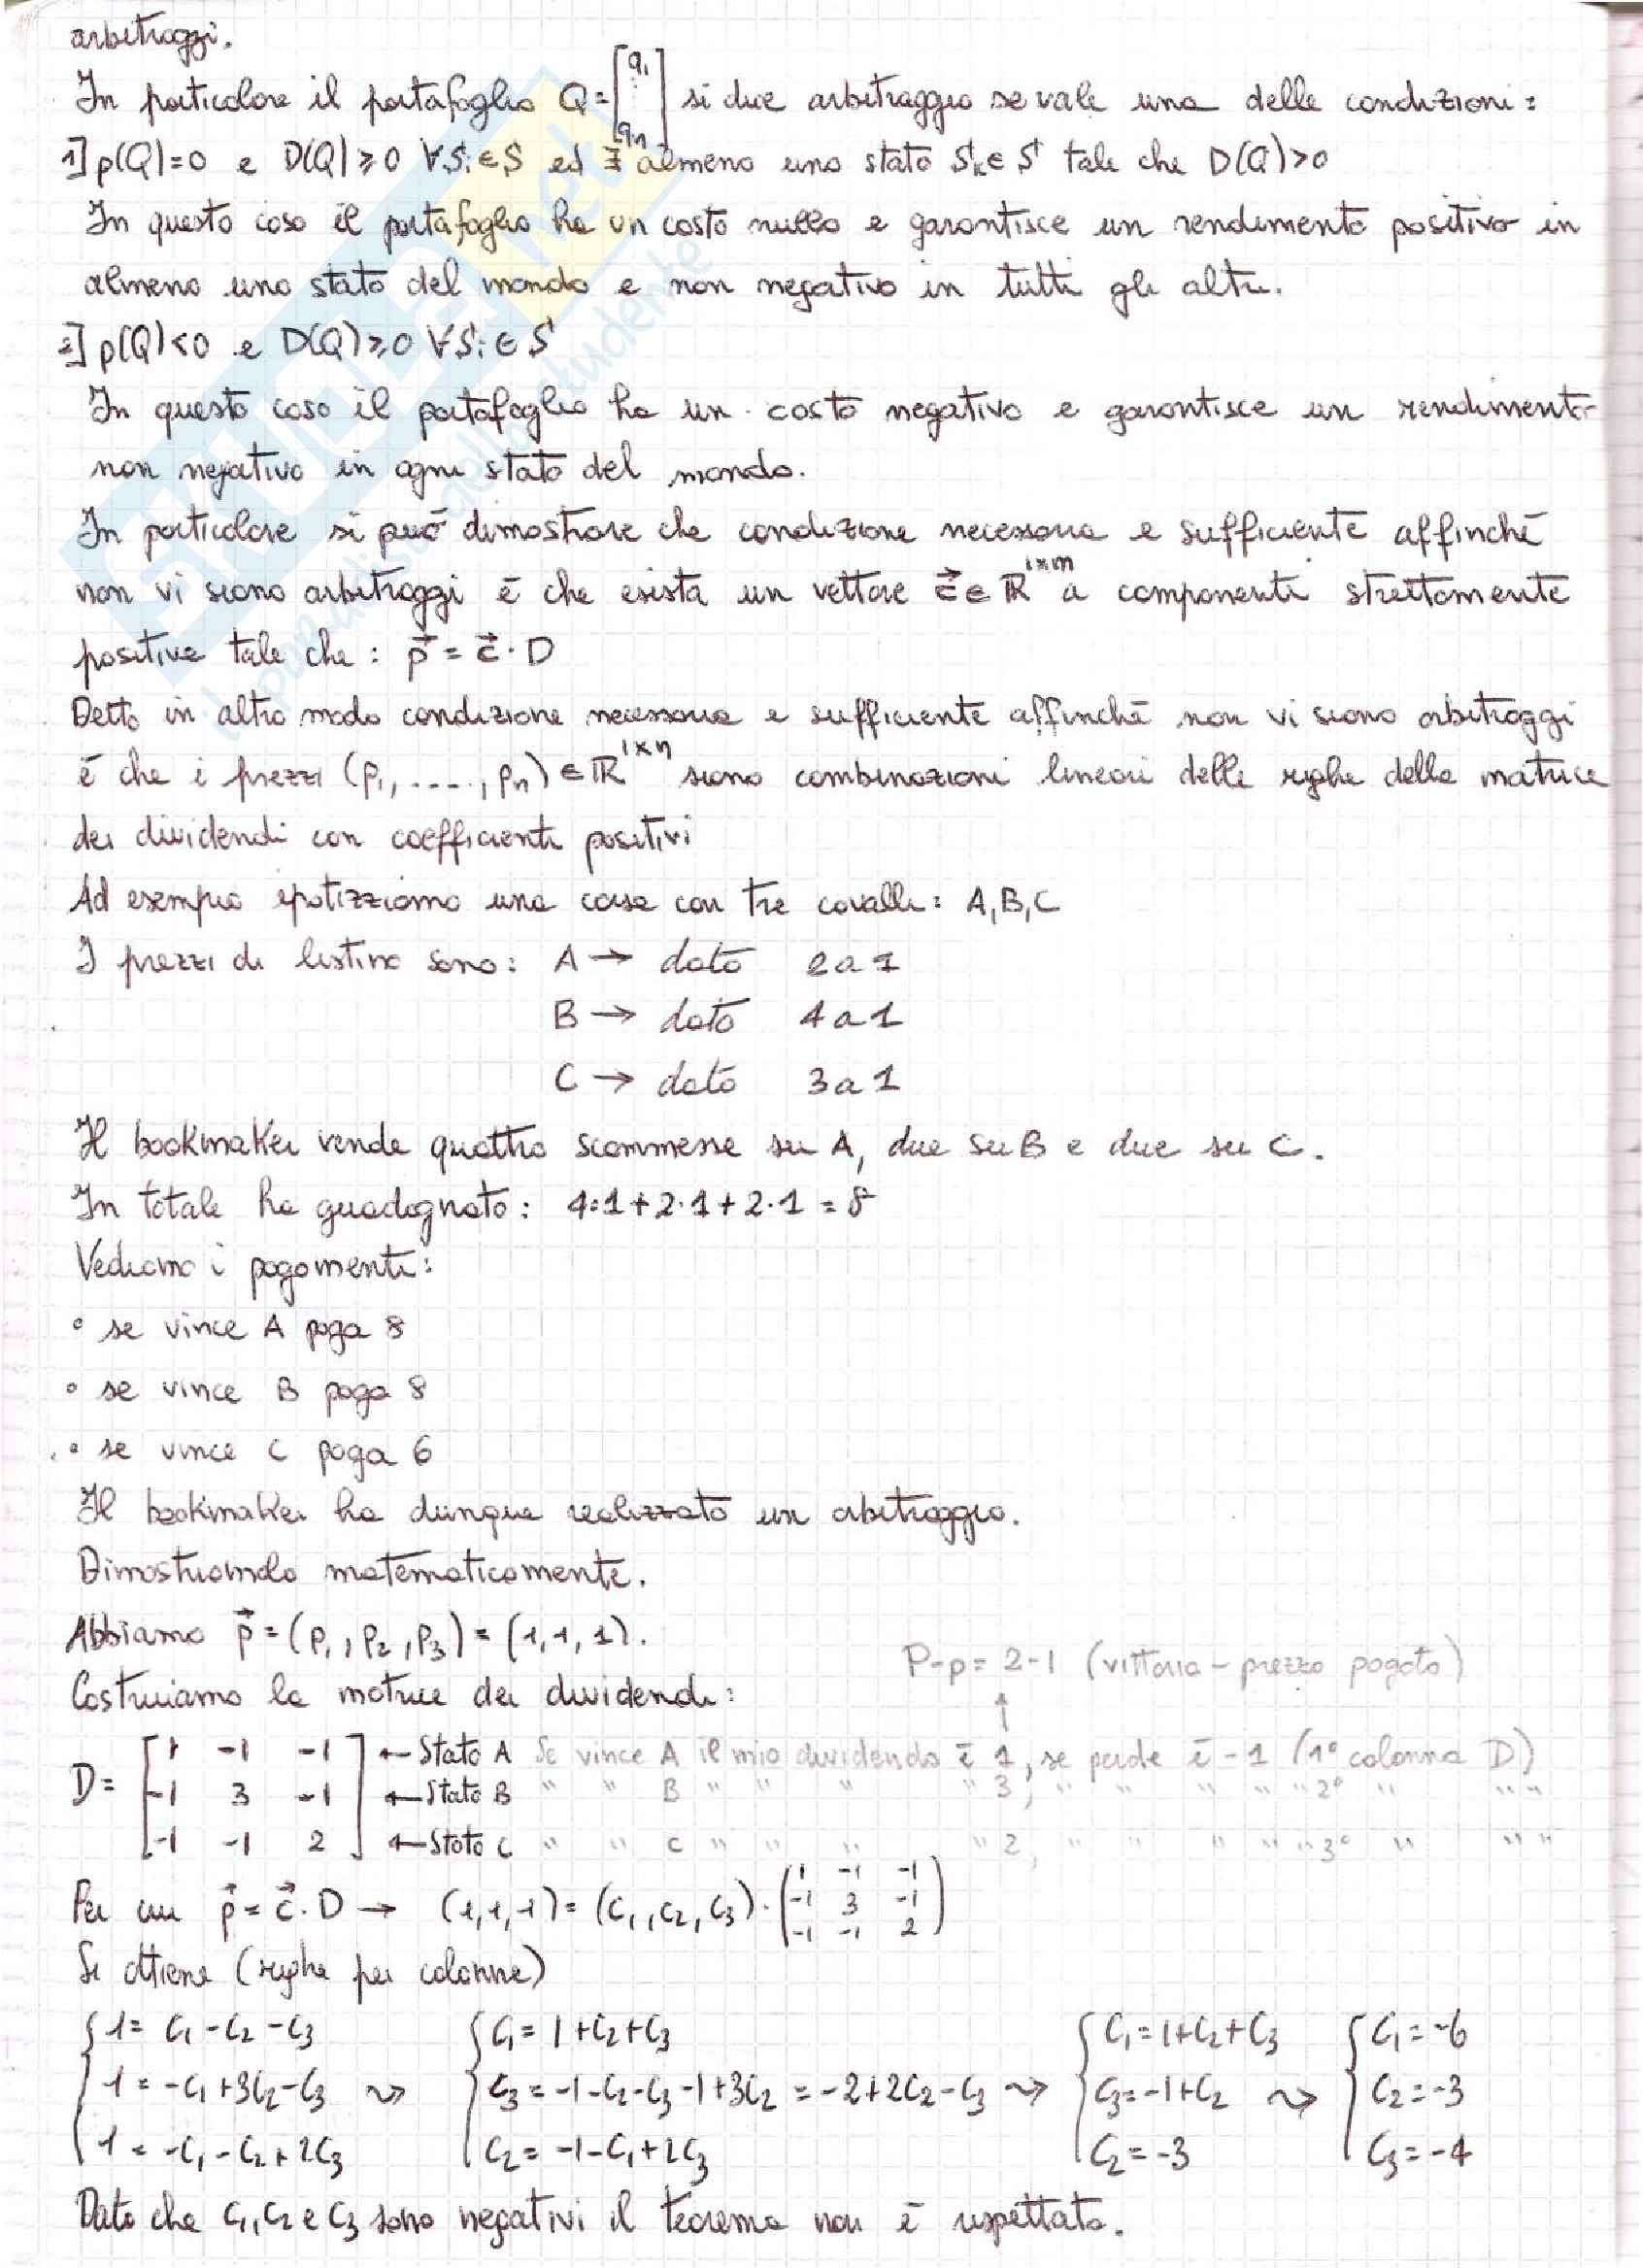 arbitraggi.
In particolare il portafoglio Q = [q₁ ⋮ qₙ] si dice arbitraggio se vale una delle condizioni:
1] p(Q)=0 e D(Q)⩾0 ∀Sᵢ∈S ed ∃ almeno uno stato Sₖ∈S tale che D(Q)>0
In questo caso il portafoglio ha un costo nullo e garantisce un rendimento positivo in
almeno uno stato del mondo e non negativo in tutti gli altri.
2] p(Q)<0 e D(Q)⩾0 ∀Sᵢ∈S
In questo caso il portafoglio ha un costo negativo e garantisce un rendimento
non negativo in ogni stato del mondo.
In particolare si può dimostrare che condizione necessaria e sufficiente affinché
non vi siano arbitraggi è che esista un vettore c⃗ ∈ ℝ¹ˣᵐ a componenti strettamente
positive tale che: p⃗ = c⃗ · D
Detto in altro modo condizione necessaria e sufficiente affinché non vi siano arbitraggi
è che i prezzi (p₁, ...., pₙ) ∈ ℝ¹ˣⁿ siano combinazioni lineari delle righe della matrice
dei dividendi con coefficienti positivi
Ad esempio ipotizziamo una corsa con tre cavalli: A, B, C
I prezzi di listino sono: A → dato 2 a 1
B → dato 4 a 1
C → dato 3 a 1
Il bookmaker vende quattro scommesse su A, due su B e due su C.
In totale ha guadagnato: 4·1+2·1+2·1 = 8
Vediamo i pagamenti:
° se vince A paga 8
° se vince B paga 8
° se vince C paga 6
Il bookmaker ha dunque realizzato un arbitraggio.
Dimostriamolo matematicamente.
Abbiamo p⃗ = (p₁, p₂, p₃) = (1, 1, 1).
P-p = 2-1 (vittoria - prezzo pagato)
Costruiamo la matrice dei dividendi: ↑
D = [1 -1 -1] ← Stato A Se vince A il mio dividendo è 1, se perde è -1 (1° colonna D)
[-1 3 -1] ← Stato B " " B " " " " 3, " " " " " 2° " " "
[-1 -1 2] ← Stato C " " C " " " " 2, " " " " " 3° " " "
Per cui p⃗ = c⃗ · D → (1, 1, 1) = (c₁, c₂, c₃) · (1 -1 -1 / -1 3 -1 / -1 -1 2)
Si ottiene (righe per colonne)
{1 = c₁ - c₂ - c₃ {c₁ = 1 + c₂ + c₃ {c₁ = 1 + c₂ + c₃ {c₁ = -6
1 = -c₁ + 3c₂ - c₃ ⤳ c₃ = -1 - c₂ - c₃ - 1 + 3c₂ = -2 + 2c₂ - c₃ ⤳ c₃ = -1 + c₂ ⤳ c₂ = -3
1 = -c₁ - c₂ + 2c₃ c₂ = -1 - c₁ + 2c₃ c₂ = -3 c₃ = -4
Dato che c₁, c₂ e c₃ sono negativi il teorema non è rispettato.